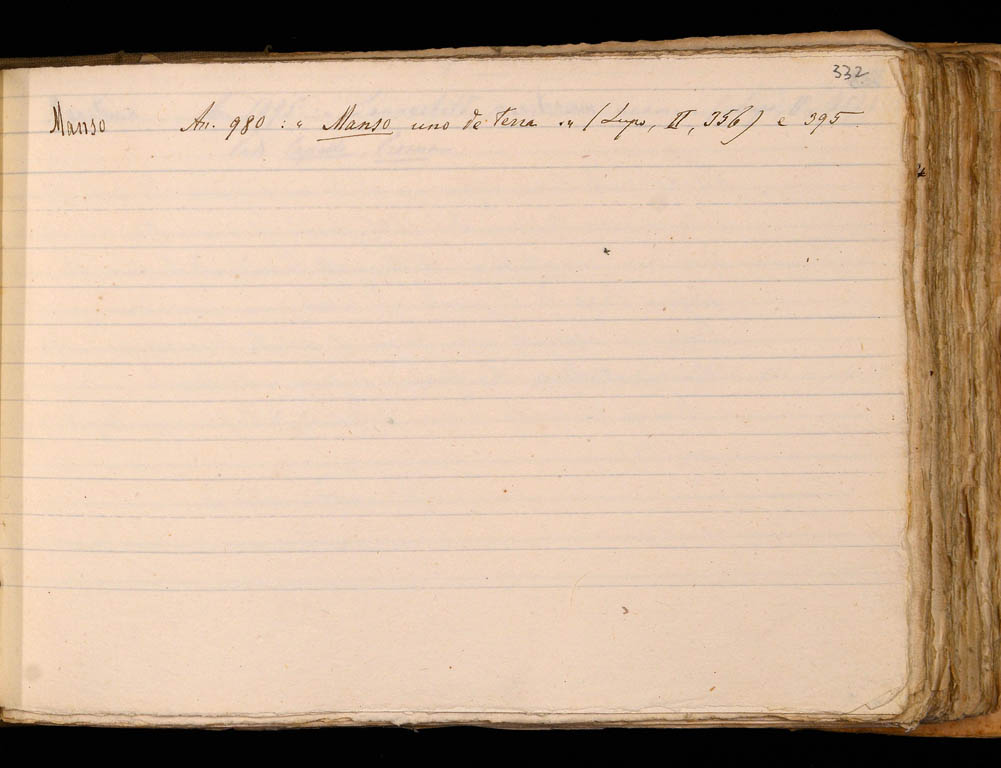 332
Manso An. 980 : " Manso uno de terra . " (Lupo, II, 356) e 395.